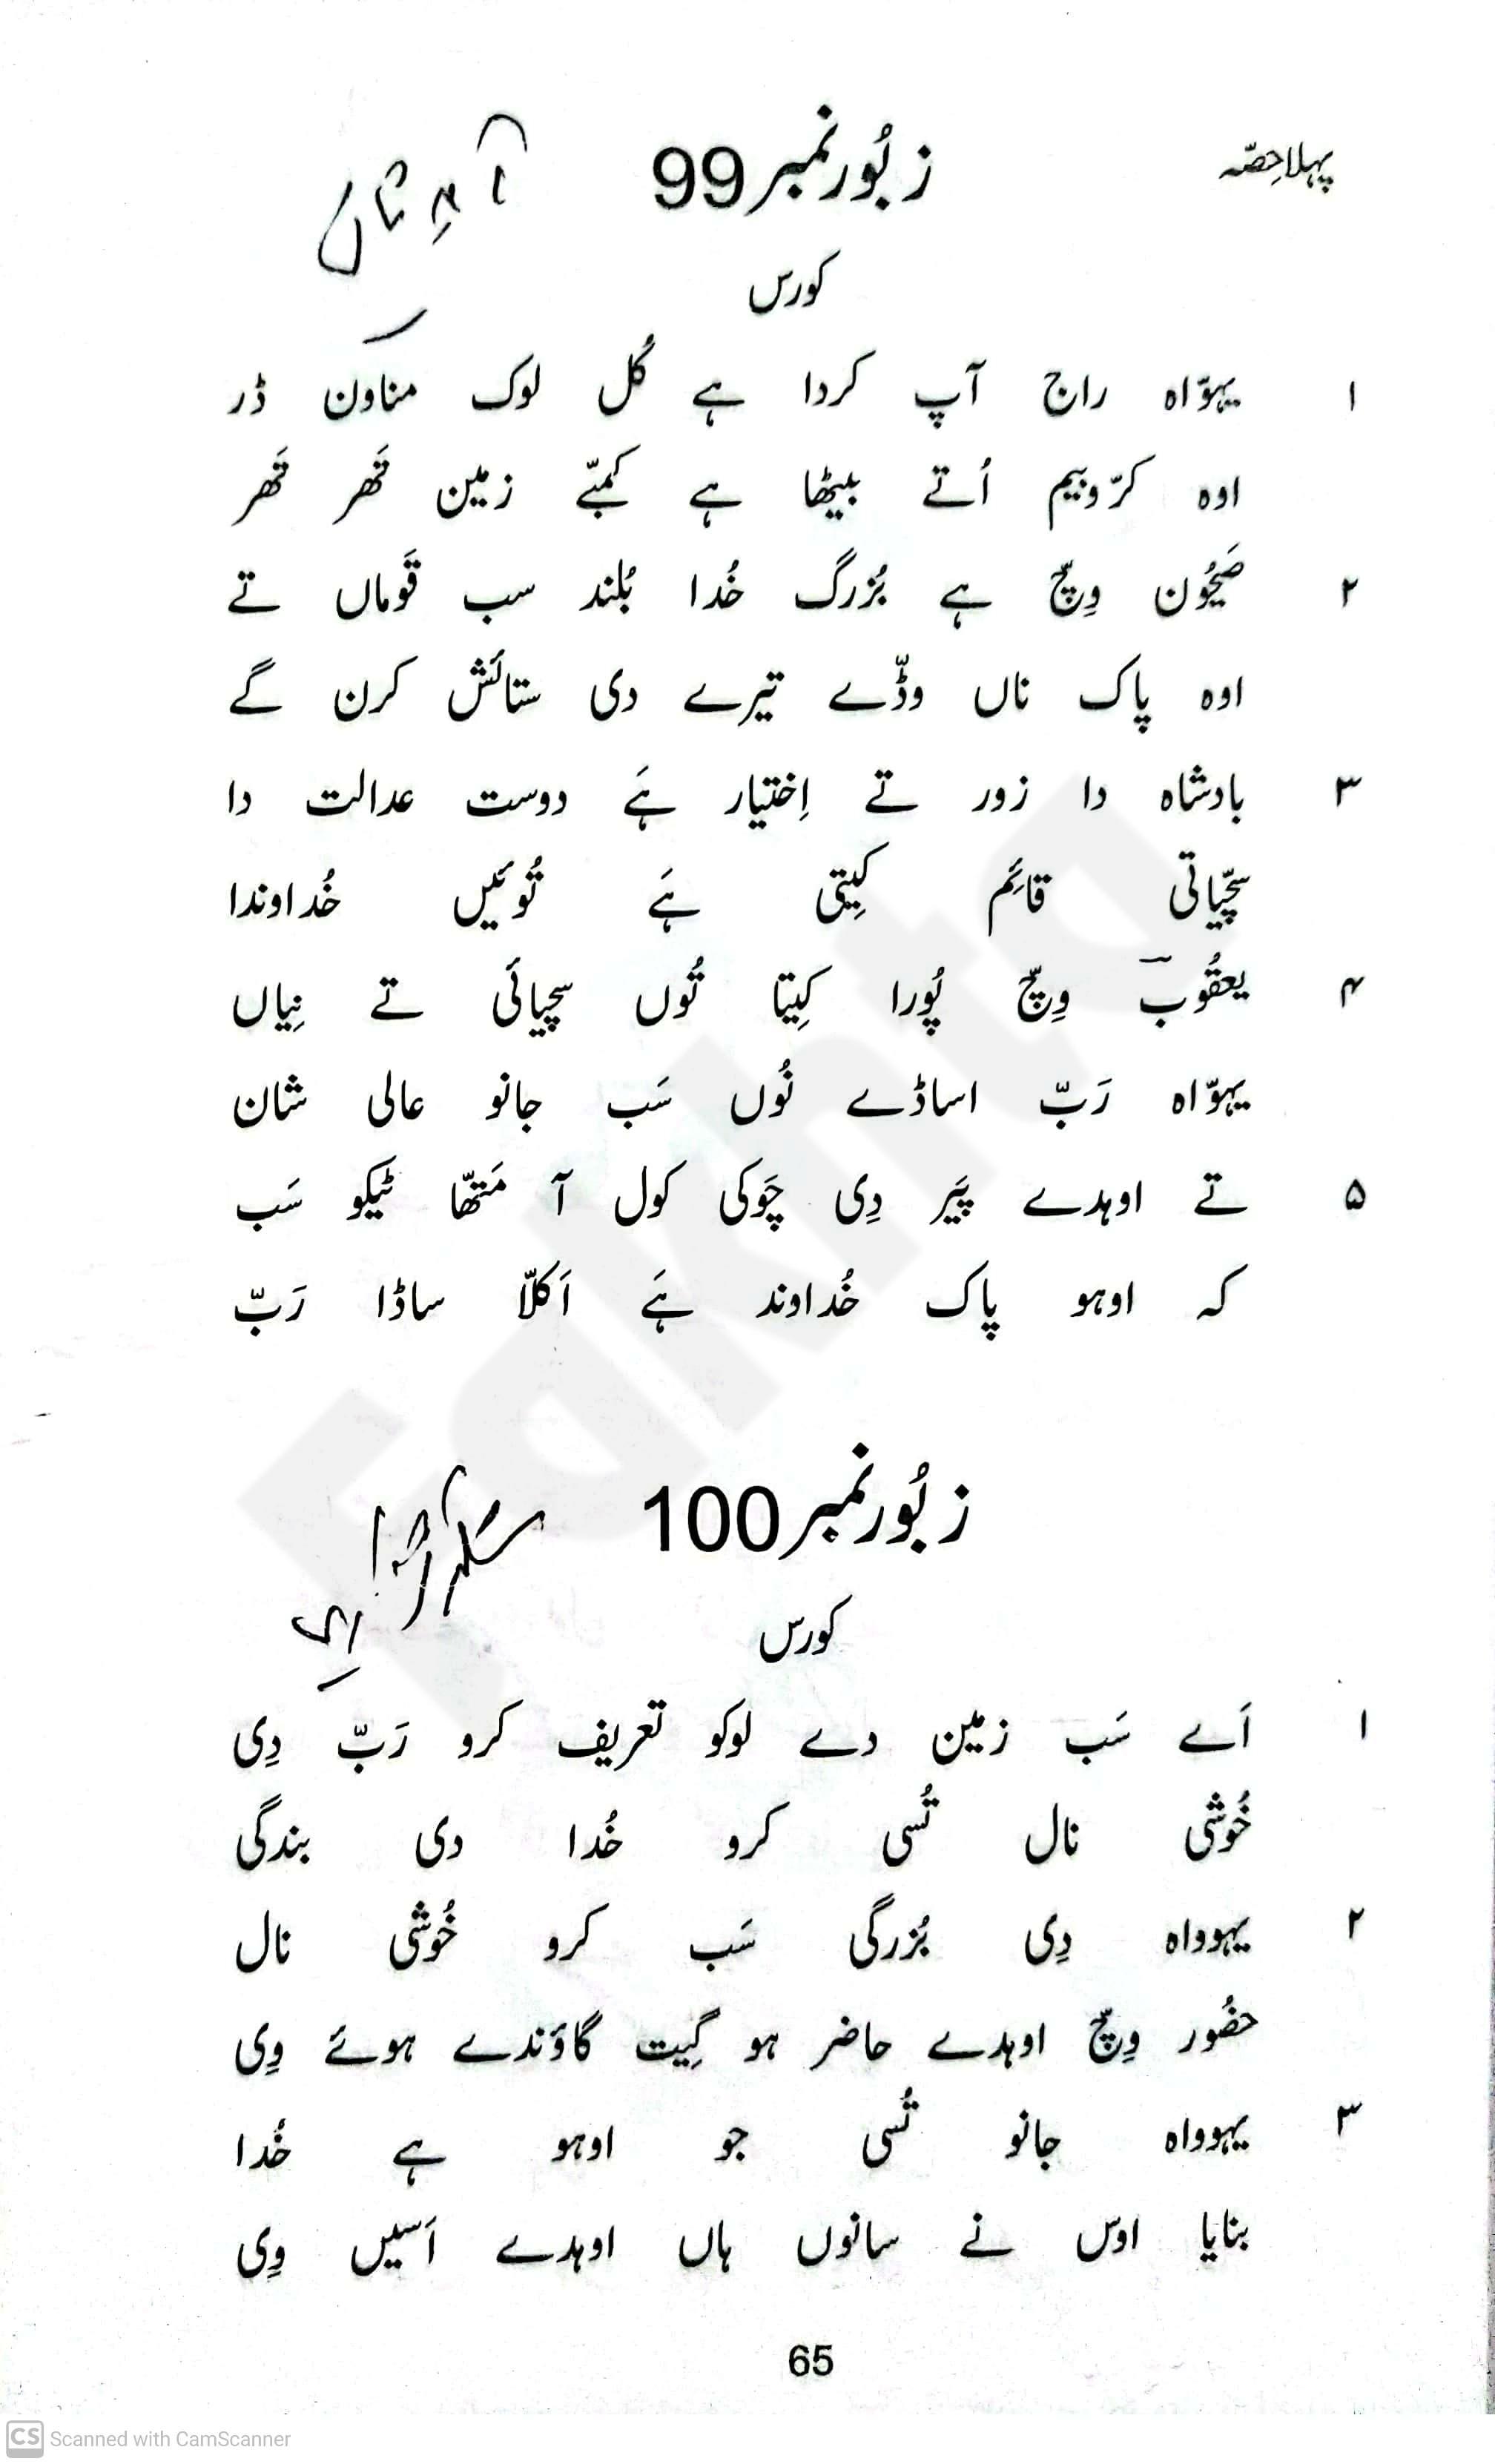 پہلا حِصّہ
زبُور نمبر 99
کورس
۱ یہوّاہ راج آپ کردا ہے کُل لوک مناون ڈر
اوہ کرّوبیم اُتے بیٹھا ہے کمبّے زمین تَھر تَھر
۲ صَیحُون وِچّ ہے بُزرگ خُدا بُلند سب قَوماں تے
اوہ پاک ناں وڈّے تیرے دی ستائش کرن گے
۳ بادشاہ دا زور تے اِختیار ہَے دوست عدالت دا
سچّیاتی قائِم کِیتی ہَے تُوئیں خُداوندا
۴ یعقُوب وِچّ پُورا کِیتا تُوں سچیائی تے نِیاں
یہوّاہ رَبّ اساڈے نُوں سَب جانو عالی شان
۵ تے اوہدے پَیر دِی چَوکی کول آ مَتھّا ٹیکو سَب
کہ اوہو پاک خُداوند ہَے اَکلّا ساڈا رَبّ
زبُور نمبر 100
کورس
۱ اَے سَب زمین دے لوکو تعریف کرو رَبّ دِی
خُوشی نال تُسی کرو خُدا دی بندگی
۲ یہوواہ دِی بُزرگی سَب کرو خُوشی نال
حضُور وِچّ اوہدے حاضر ہو گِیت گاؤندے ہوئے وِی
۳ یہوواہ جانو تُسی جو اوہو ہے خُدا
بنایا اوس نے سانوں ہاں اوہدے اَسیں وِی
65
Fakhta
CS Scanned with CamScanner